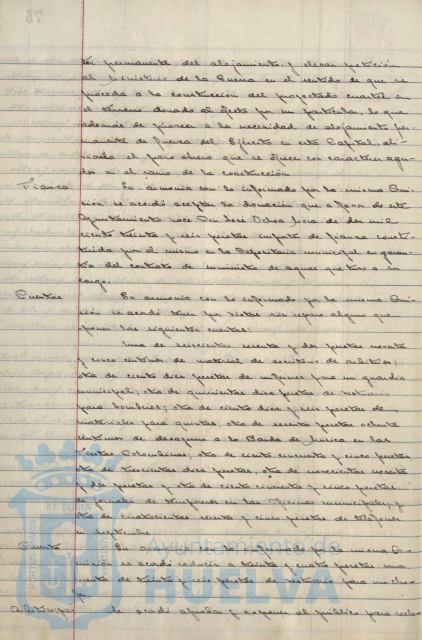 ter permanente del alojamiento, y elevar petición
al Ministerio de la Guerra en el sentido de que se
proceda a la construcción del proyectado cuartel en
el terreno donado al efecto por un particular, lo que
además de proveer a la necesidad de alojamiento per-
manente de fuerza del Ejército en esta Capital,
el paro obrero que se ofrece con caracteres agu-
dos en el ramo de la construcción
Fianza. En armonía con lo informado por la misma Comi-
sión se acordó aceptar la donación que a favor de este
Ayuntamiento hace Don José Ochoa de dos mil
ciento treinta y seis pesetas importe de fianza consti-
tuida por el mismo en la Depositaría municipal en garan-
tía del contrato de suministro de aguas que tuvo a su
cargo.
Cuentas En armonía con lo informado por la misma Comi-
sión se acordó tener por vistas sin reparo alguno que
oponer las siguientes cuentas:
Una de seiscientas y dos pesetas noventa
y cinco céntimos de material de escritorio de arbitrios;
otra de ciento diez pesetas de uniforme para un guardia
municipal; otra de quinientas diez pesetas de vestuario
para bomberos; otra de ciento diez y seis pesetas de
materiales para quintas; otra de pesetas ochenta
céntimos de desayuno a la Banda de Música en las
Fiestas Colombinas; otra de ciento cincuenta y cinco pesetas,
otra de trescientas diez pesetas, otra de novecientas noventa
y dos pesetas y otra de ciento cincuenta y cinco pesetas
de jornales de temporeros en las Oficinas municipales, y
otra de cuatrocientas y cinco pesetas de teléfonos
en septiembre.
Cuenta En armonía con lo informado por la misma Co-
misión se acordó reducir a treinta y cuatro pesetas una
cuenta de treinta y seis pesetas de vestuario para un
se acordó aprobar y exponer al público para recla-
Ayuntamiento de
HUELVA